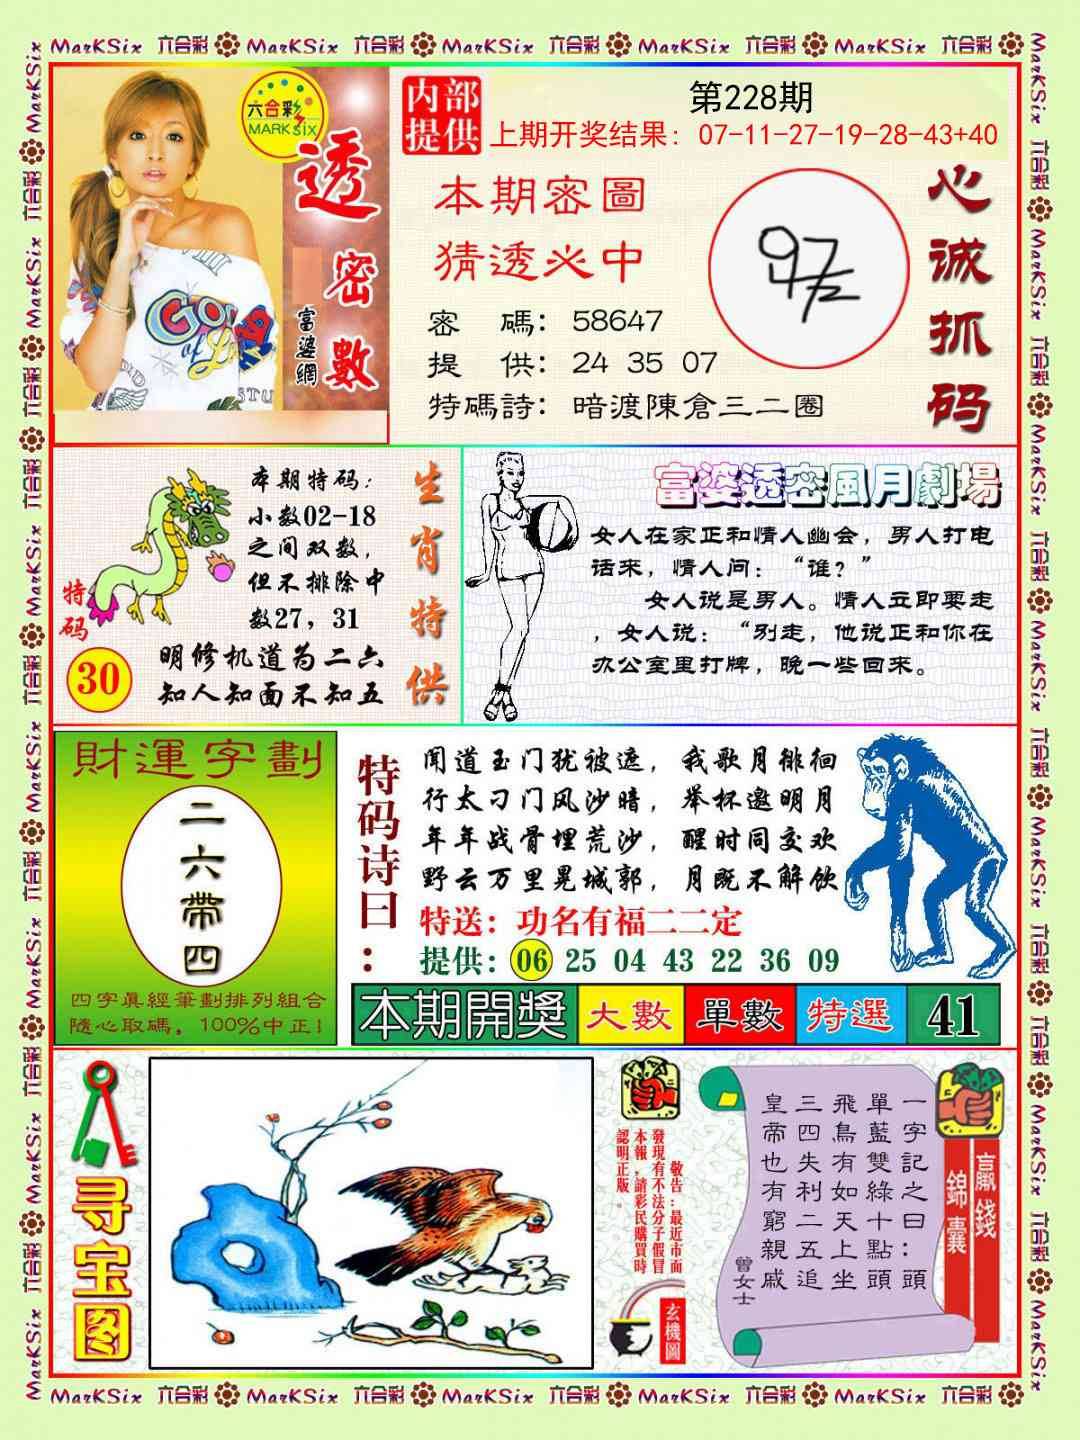 MarKSix 六合彩 MarKSix 六合彩 MarKSix 六合彩 MarKSix 六合彩 MarKSix 六合彩
六合彩
MARK SIX
透密數
富婆網
内部
提供
第228期
上期开奖结果：07-11-27-19-28-43+40
本期密圖
猜透必中
密 碼：58647
提 供：24 35 07
特碼詩：暗渡陳倉三二圈
心诚抓码
本期特码：
小数02-18
之间双数，
但不排除中
数27，31
明修机道为二六
知人知面不知五
特码
30
生肖特供
富婆透密風月劇場
女人在家正和情人幽会，男人打电
话来，情人问：“谁？”
女人说是男人。情人立即要走
，女人说：“别走，他说正和你在
办公室里打牌，晚一些回来。
財運字劃
二六帶四
四字眞經筆劃排列組合
隨心取碼，100%中正!
特码诗曰：
闻道玉门犹被遮，我歌月徘徊
行太刁门风沙暗，举杯邀明月
年年战骨埋荒沙，醒时同交欢
野云万里晃城郭，月既不解饮
特送：功名有福二二定
提供：06 25 04 43 22 36 09
本期開獎 大數 單數 特選 41
寻宝图
敬告：最近市面
發現有不法分子假冒
本報，請彩民購買時
認明正版。
玄機圖
贏錢
錦囊
一字記之曰：頭
單藍雙綠十點頭
飛鳥有如天上坐
三四失利二五追
皇帝也有窮親戚
曾女士
MarKSix 六合彩 MarKSix 六合彩 MarKSix 六合彩 MarKSix 六合彩 MarKSix 六合彩